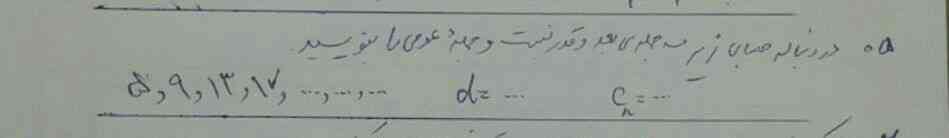 ۵. در دنباله حسابی زیر سه جمله‌ی بعد و قدر نسبت و جملهٔ عمومی را بنویسید
۵, ۹, ۱۳, ۱۷, ..., ..., ... d= ... Cₙ= ...